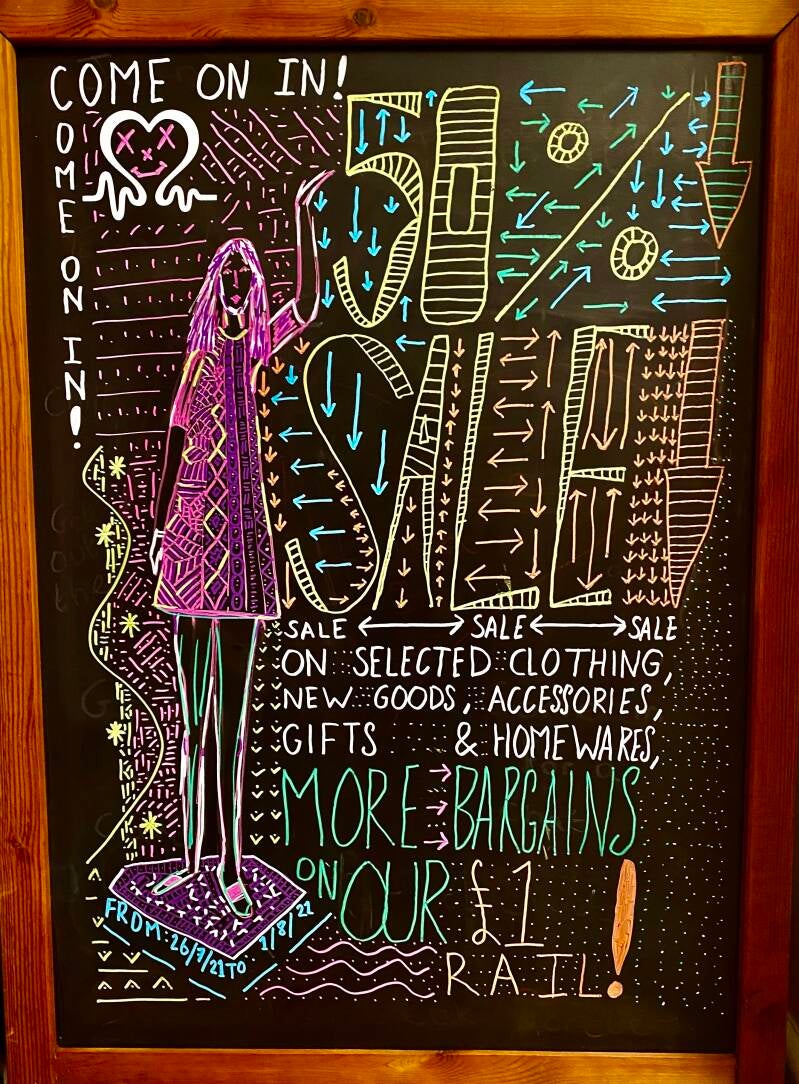 COME ON IN!
COME ON IN!
50%
SALE
SALE SALE SALE
ON SELECTED CLOTHING,
NEW GOODS, ACCESSORIES,
GIFTS & HOMEWARES,
MORE BARGAINS
ON OUR £1
RAIL!
FROM: 26/7/21 TO 1/8/21